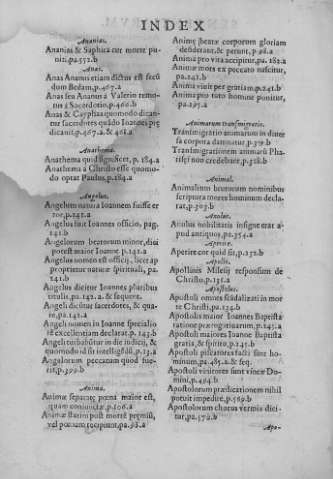 INDEX
Ananias.
Ananias & Saphica cur morte pu-
niti. pa.552.b
Anas.
Anas Ananus etiam dictus est secũ
dum Bedam, p.467.a
Anas seu Ananus à Valerio remo-
tus à Sacerdotio, p.460.b
Anas & Cayphas quomodo dican
tur sacerdotes quãdo Ioannes præ
dicauit. p.467.a. & 461.a
Anathema.
Anathema quid significet, p. 184.a
Anathema à Christo esse quomo-
do optat Paulus, p.184.a
Angelus.
Angelum natura Ioannem fuisse er
ror, p.141.a
Angelus fuit Ioannes officio, pag.
141.b
Angelorum beatorum minor, dici
potest maior Ioanne p.142.a
Angelus nomen est officij, licet ap
proprietur naturæ spirituali, pa.
141.b
Angelus dicitur Ioannes pluribus
titulis, pa.142.a. & sequent.
Angeli dicuntur sacerdotes, & qua-
re, pa.142.a
Angeli nomen in Ioanne specialio
is excellentiam declarat, p.143.b
Angeli turbabũtur in die iudicij, &
quomodo id sit intelligẽdũ, p.15.a
Angelorum peccatum quod fue-
rit, p.399.b
Anima.
Animæ separatę pœna maior est,
quam coniunctæ, p.106.a
Animæ statim post mortẽ premiũ,
vel pœnam recipiunt, pa.98.a
Animę beatæ corporum gloriam
desiderant, & petunt, p.98.a
Anima pro vita accipitur, pa. 182.a
Animæ mors ex peccato nascitur,
pa.241.b
Anima viuit per gratiam, p.241.b
Anima pro toto homine ponitur,
pa.295.a
Animarum transmigratio.
Transmigratio animarum in diuer
sa corpora damnatur, p.519.b
Transmigrationem animarũ Pha-
risęi non credebant, p.518.b
Animal.
Animalium brutorum nominibus
scriptura mores hominum decla-
rat, p.503.b
Anulus.
Anulus nobilitatis insigne erat a-
pud antiquos, pa.354.a
Aperire.
Aperire cor quid sit, p.152.b
Apollo.
Apollinis Milesij responsum de
Christo, p.135.a
Apostoli.
Apostoli omnes scãdalizati in mor
te Christi, pa.134.b
Apostolis maior Ioannes Baptista
ratione præ rogatiuarum, p.145.a
Apostolis maiores Ioanne Baptista
gratia, & spiritu, p.145.b
Apostoli piscatores facti sunt ho-
minum, pa.485.2. & seq.
Apostoli vinitores sunt vineæ Do-
mini, p.494.b
Apostolorum prædicationem nihil
potuit impedire, p.569.b
Apostolorum chorus vermis dici-
tur, pa.572.b
Apo-